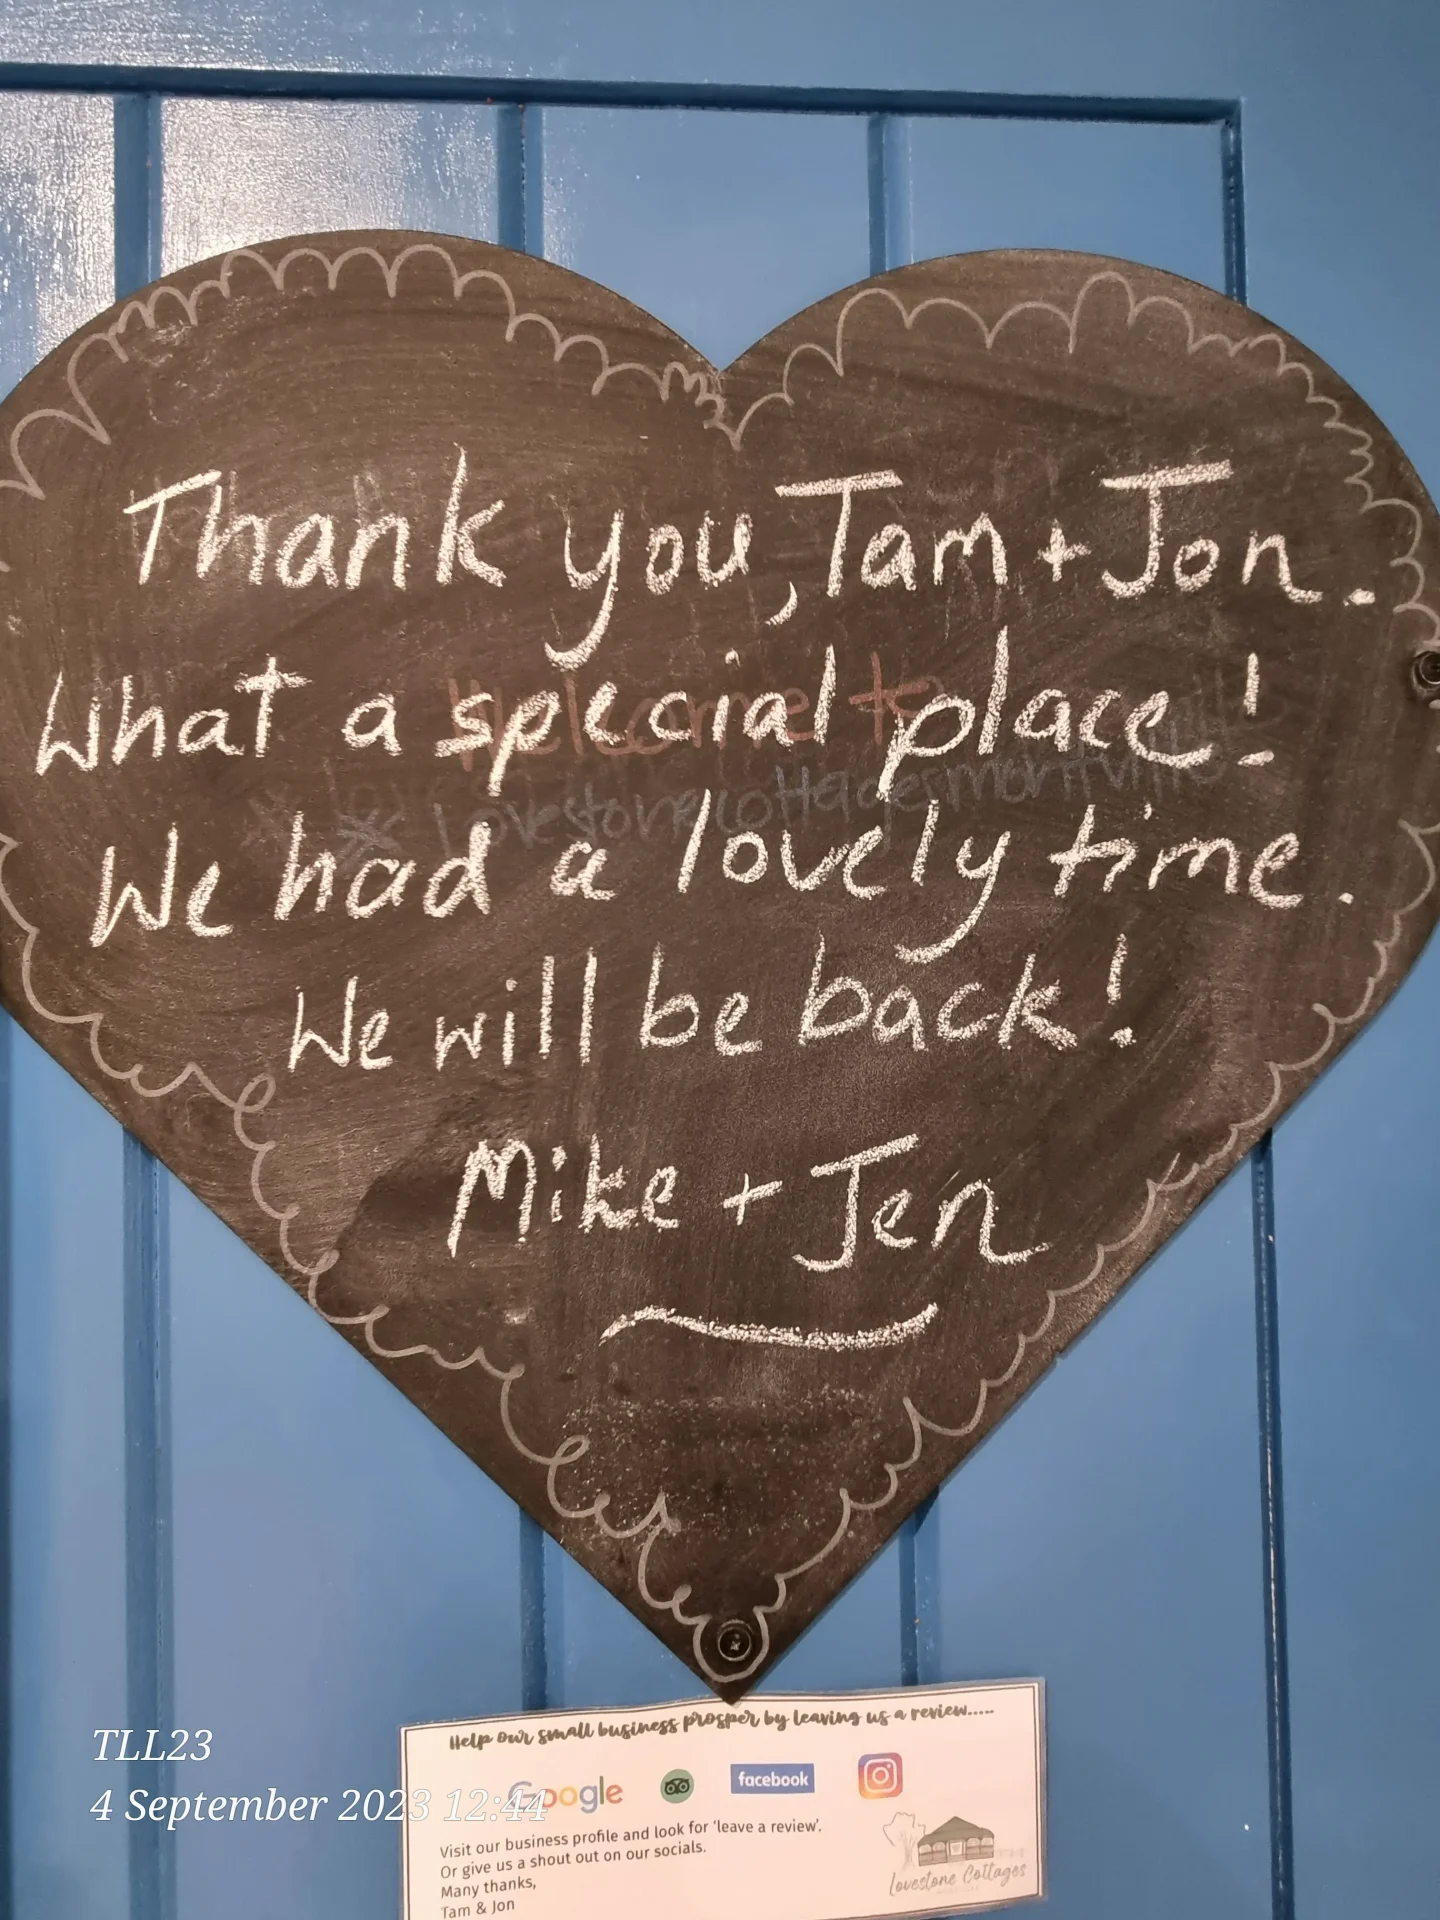 Thank you, Tam + Jon.
What a special place!
Welcome to
We had a lovely time.
lovestonecottagesmontville
We will be back!
Mike + Jen
Help our small business prosper by leaving us a review.....
Google facebook
Visit our business profile and look for 'leave a review'.
Or give us a shout out on our socials.
Many thanks,
Tam & Jon
Lovestone Cottages
TLL23
4 September 2023 12:44